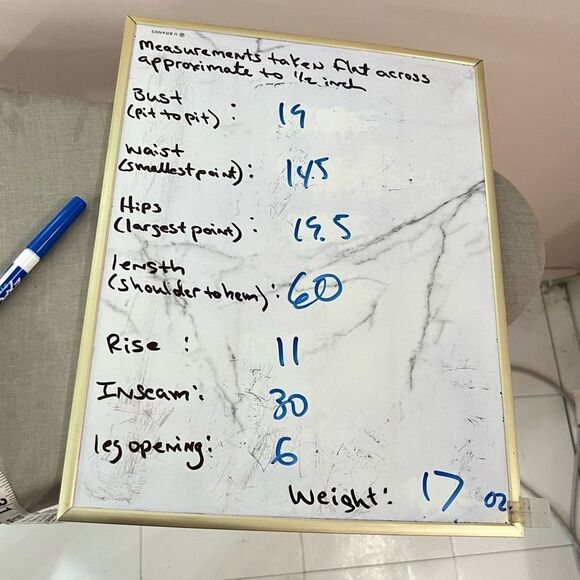 U BRANDS
Measurements taken flat across
approximate to 1/2 inch
Bust
(pit to pit) : 19
Waist
(smallest point) : 14.5
Hips
(largest point) : 19.5
length
(shoulder to hem) : 60
Rise : 11
Inseam : 30
leg opening : 6
Weight : 17 oz
21